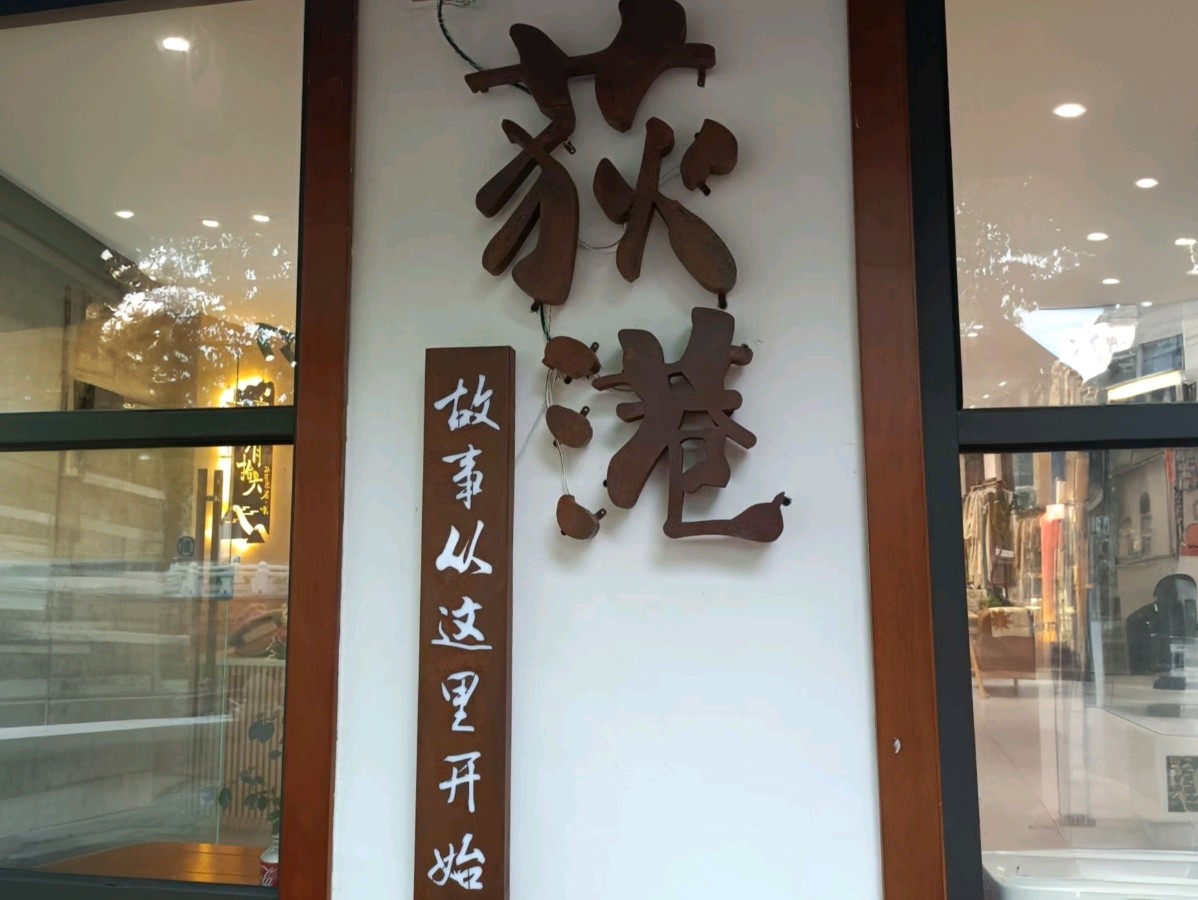 荻港
故事从这里开始